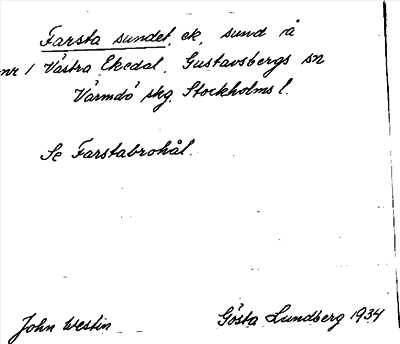 Farsta sundet, ek, sund å
nr 1 Västra Ekedal, Gustavsbergs sn
Värmdö skg. Stockholms l.
Se Farstabrohål.
John Westin Gösta Lundberg 1934